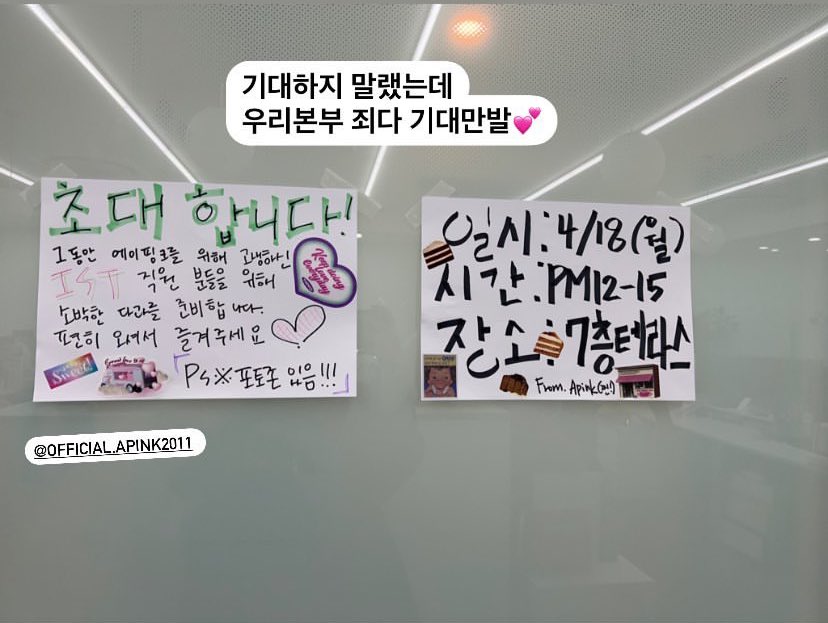 기대하지 말랬는데
우리본부 죄다 기대만발💕
초대 합니다!
그동안 에이핑크를 위해 고생하신
IST 직원 분들을 위해
소박한 다과를 준비합니다.
편히 오셔서 즐겨주세요
Sweet
PS※포토존 있음!!!
일시:4/18(월)
시간:PM12-15
장소:7층테라스
From. Apink
@OFFICIAL.APINK2011